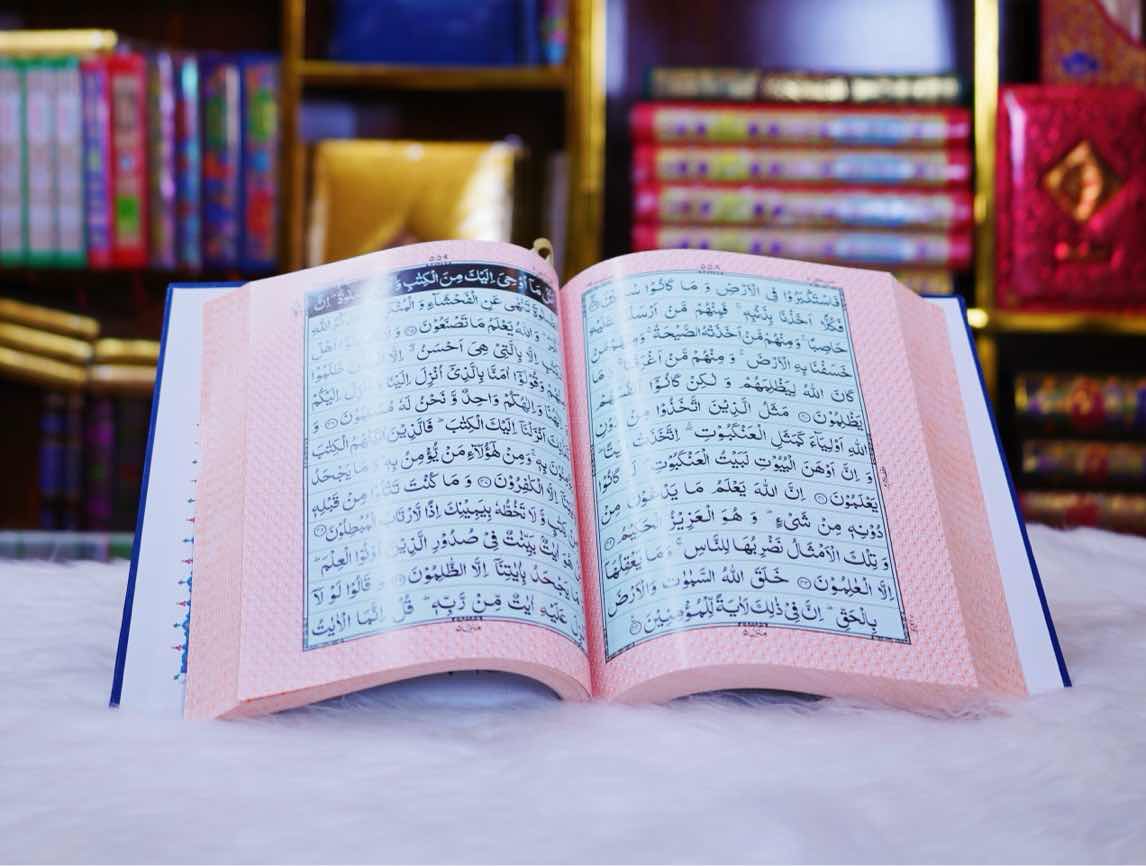 ٥٥٨
فَاسْتَكْبَرُوْا فِى الْاَرْضِ وَ مَا كَانُوْا
فَكُلًّا اَخَذْنَا بِذَنْۢبِهٖ ۚ فَمِنْهُمْ مَّنْ اَرْسَلْنَا عَلَيْهِ
حَاصِبًا ۚ وَمِنْهُمْ مَّنْ اَخَذَتْهُ الصَّيْحَةُ ۚ وَمِنْهُمْ مَّنْ
خَسَفْنَا بِهِ الْاَرْضَ ۚ وَمِنْهُمْ مَّنْ اَغْرَقْنَا ۚ وَمَا
كَانَ اللّٰهُ لِيَظْلِمَهُمْ وَ لٰكِنْ كَانُوْۤا اَنْفُسَهُمْ
يَظْلِمُوْنَ ۝ مَثَلُ الَّذِيْنَ اتَّخَذُوْا مِنْ دُوْنِ
اللّٰهِ اَوْلِيَآءَ كَمَثَلِ الْعَنْكَبُوْتِ ۚ اِتَّخَذَتْ بَيْتًا ؕ
وَ اِنَّ اَوْهَنَ الْبُيُوْتِ لَبَيْتُ الْعَنْكَبُوْتِ ۘ لَوْ كَانُوْا
يَعْلَمُوْنَ ۝ اِنَّ اللّٰهَ يَعْلَمُ مَا يَدْعُوْنَ مِنْ
دُوْنِهٖ مِنْ شَیْءٍ ؕ وَ هُوَ الْعَزِيْزُ الْحَكِيْمُ ۝
وَ تِلْكَ الْاَمْثَالُ نَضْرِبُهَا لِلنَّاسِ ۚ وَ مَا يَعْقِلُهَاۤ
اِلَّا الْعٰلِمُوْنَ ۝ خَلَقَ اللّٰهُ السَّمٰوٰتِ وَالْاَرْضَ
بِالْحَقِّ ؕ اِنَّ فِىْ ذٰلِكَ لَاٰيَةً لِّلْمُؤْمِنِيْنَ ۝
٥٥٩
مَاۤ اُوْحِىَ اِلَيْكَ مِنَ الْكِتٰبِ
تَنْهٰى عَنِ الْفَحْشَآءِ وَ الْمُنْكَرِ
وَاللّٰهُ يَعْلَمُ مَا تَصْنَعُوْنَ ۝ وَ
اِلَّا بِالَّتِىْ هِىَ اَحْسَنُ ۖ اِلَّا ظَلَمُوْا
وَ قُوْلُوْۤا اٰمَنَّا بِالَّذِىْۤ اُنْزِلَ اِلَيْنَا وَ اُنْزِلَ اِلَيْكُمْ
وَ اِلٰهُكُمْ وَاحِدٌ وَّ نَحْنُ لَهٗ مُسْلِمُوْنَ ۝ وَ
اَنْزَلْنَاۤ اِلَيْكَ الْكِتٰبَ ؕ فَالَّذِيْنَ اٰتَيْنٰهُمُ الْكِتٰبَ
بِهٖ ۚ وَ مِنْ هٰۤؤُلَآءِ مَنْ يُّؤْمِنُ بِهٖ ؕ وَ مَا يَجْحَدُ
اِلَّا الْكٰفِرُوْنَ ۝ وَ مَا كُنْتَ تَتْلُوْا مِنْ قَبْلِهٖ
كِتٰبٍ وَّ لَا تَخُطُّهٗ بِيَمِيْنِكَ اِذًا لَّارْتَابَ الْمُبْطِلُوْنَ ۝
هُوَ اٰيٰتٌۢ بَيِّنٰتٌ فِىْ صُدُوْرِ الَّذِيْنَ اُوْتُوا الْعِلْمَ ؕ
مَا يَجْحَدُ بِاٰيٰتِنَاۤ اِلَّا الظّٰلِمُوْنَ ۝ وَ قَالُوْا لَوْ لَاۤ
عَلَيْهِ اٰيٰتٌ مِّنْ رَّبِّهٖ ؕ قُلْ اِنَّمَا الْاٰيٰتُ